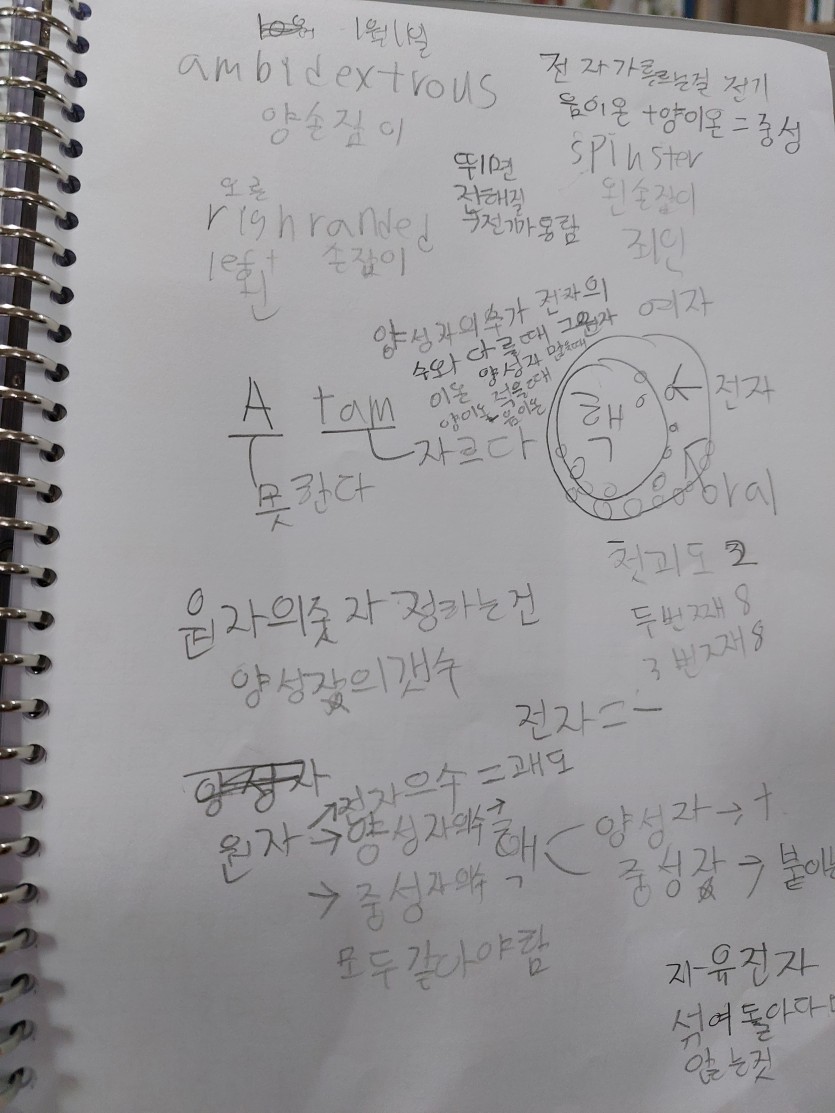 1월 1일
ambidextrous
양손잡이
전자가 흐르는걸 전기
음이온 +양이온 = 중성
spinster
왼손잡이
죄인
여자
뛰면
전해질
오른
left 손잡이
왼
양성자의수가 전자의
수와 다를때 그원자
이온 양성자 많을때
양이온 적을때 음이온
A tam
못한다
자르다
핵
전자
첫괴도 2
두번째 8
3번째 8
원자의 정하는건
양성자의갯수
전자=-
전자으수 = 괘도
원자 → 양성자의수 → 핵
→ 중성자의수
모두 같아야함
양성자 → +
중성자 →
자유전자
섞여 돌아다